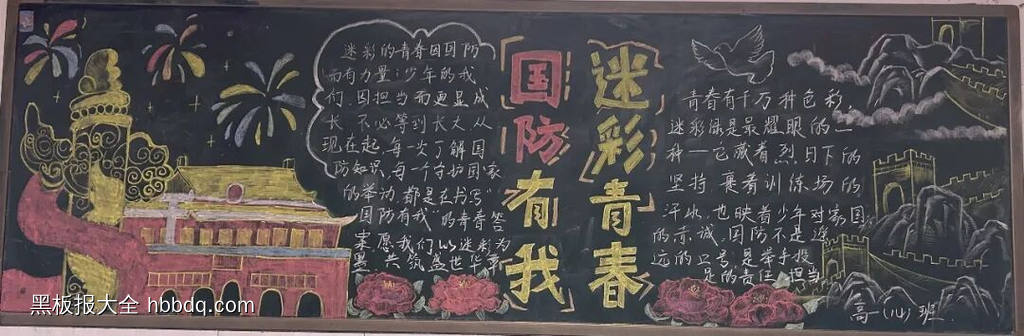 迷彩的青春因国防
而有力量;少年的我
们,因担当而更显成
长,不必等到长大,从
现在起,每一次了解国
防知识,每一个守护国家
的举动,都是在书写“
国防有我”的青春答
案,愿我们以迷彩为
墨,共筑盛世华章
国防有我
迷彩青春
青春有千万种色彩,
迷彩绿是最耀眼的一
种—它藏着烈日下的
坚持,裹着训练场的
汗水,也映着少年对家国
的赤诚,国防不是遥
远的口号,是举手投
足的责任担当
高一(14)班
黑板报大全 hbbdq.com